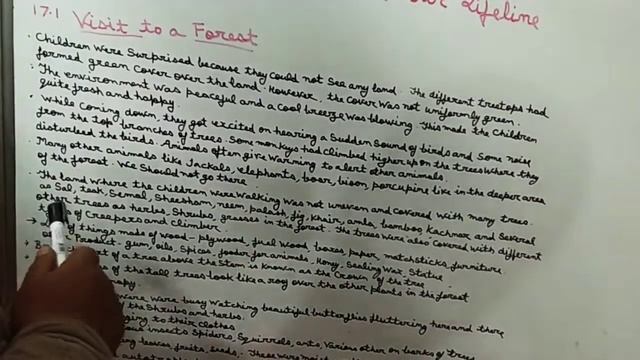 our Lifeline
17.1 Visit to a Forest
. Children were surprised because they could not see any land. The different treetops had
formed green cover over the land. However, the cover was not uniformly green.
. The environment was peaceful and a cool breeze was blowing. This made the children
quite fresh and happy.
. While coming down, they got excited on hearing a sudden sound of birds and some noise
from the top branches of trees. Some monkeys had climbed higher up on the trees where they
disturbed the birds. Animals often give warning to alert other animals.
. Many other animals like Jackals, elephants, boar, bison, porcupine like in the deeper area
of the forest. We should not go there.
. The land where the children were walking was not uneven and covered with many trees.
as Sal, teak, Semal, Sheesham, neem, palash, fig, khair, amla, bamboo, Kachnar and several
other trees as herbs, Shrubs, grasses in the forest. The trees were also covered with different
of creepers and climber.
things made of wood - plywood, fuel wood, boxes, paper, matchsticks, furniture.
Product - gum, oils, spices, fooder for animals, Honey, Sealing wax, Statue
of a tree above the stem is known as the Crown of the tree
of the tall trees look like a roof over the other plants in the forest
canopy.
were busy watching beautiful butterflies fluttering here and there
the shrubs and herbs.
to their clothes.
insects, Spiders, Squirrels, ants, Various other on barks of trees
leaves, fruits, seeds. These were